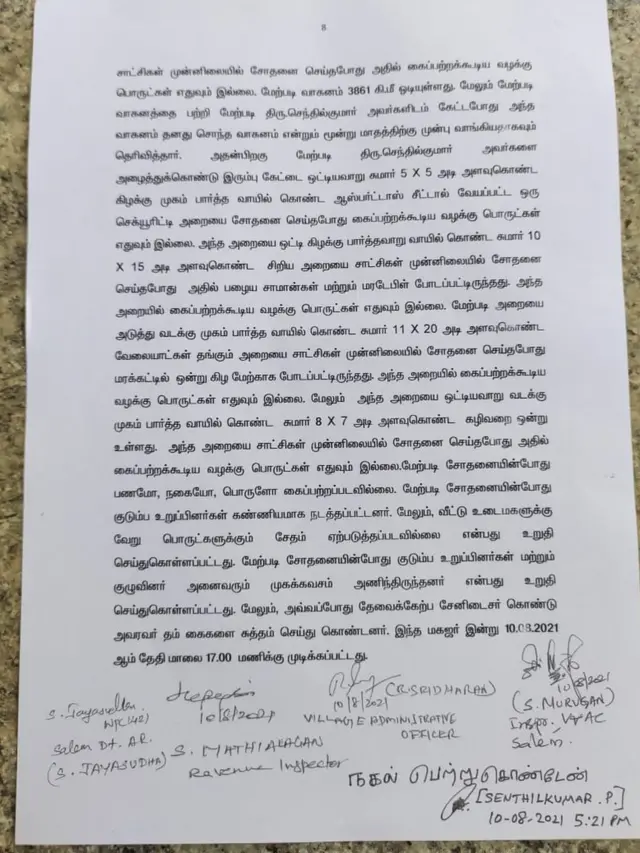 8
சாட்சிகள் முன்னிலையில் சோதனை செய்தபோது அதில் கைப்பற்றக்கூடிய வழக்கு
பொருட்கள் எதுவும் இல்லை. மேற்படி வாகனம் 3861 கி.மீ ஓடியுள்ளது. மேலும் மேற்படி
வாகனத்தை பற்றி மேற்படி திரு.செந்தில்குமார் அவர்களிடம் கேட்டபோது அந்த
வாகனம் தனது சொந்த வாகனம் என்றும் மூன்று மாதத்திற்கு முன்பு வாங்கியதாகவும்
தெரிவித்தார். அதன்பிறகு மேற்படி திரு.செந்தில்குமார் அவர்களை
அழைத்துக்கொண்டு இரும்பு கேட்டை ஒட்டியவாறு சுமார் 5 X 5 அடி அளவுகொண்ட
கிழக்கு முகம் பார்த்த வாயில் கொண்ட ஆஸ்பர்ட்டாஸ் சீட்டால் வேயப்பட்ட ஒரு
செக்யூரிட்டி அறையை சோதனை செய்தபோது கைப்பற்றக்கூடிய வழக்கு பொருட்கள்
எதுவும் இல்லை. அந்த அறையை ஒட்டி கிழக்கு பார்த்தவாறு வாயில் கொண்ட சுமார் 10
X 15 அடி அளவுகொண்ட சிறிய அறையை சாட்சிகள் முன்னிலையில் சோதனை
செய்தபோது அதில் பழைய சாமான்கள் மற்றும் மரடேபிள் போடப்பட்டிருந்தது. அந்த
அறையில் கைப்பற்றக்கூடிய வழக்கு பொருட்கள் எதுவும் இல்லை. மேற்படி அறையை
அடுத்து வடக்கு முகம் பார்த்த வாயில் கொண்ட சுமார் 11 X 20 அடி அளவுகொண்ட
வேலையாட்கள் தங்கும் அறையை சாட்சிகள் முன்னிலையில் சோதனை செய்தபோது
மரக்கட்டில் ஒன்று கிழ மேற்காக போடப்பட்டிருந்தது. அந்த அறையில் கைப்பற்றக்கூடிய
வழக்கு பொருட்கள் எதுவும் இல்லை. மேலும் அந்த அறையை ஒட்டியவாறு வடக்கு
முகம் பார்த்த வாயில் கொண்ட சுமார் 8 X 7 அடி அளவுகொண்ட கழிவறை ஒன்று
உள்ளது. அந்த அறையை சாட்சிகள் முன்னிலையில் சோதனை செய்தபோது அதில்
கைப்பற்றக்கூடிய வழக்கு பொருட்கள் எதுவும் இல்லை.மேற்படி சோதனையின்போது
பணமோ, நகையோ, பொருளோ கைப்பற்றப்படவில்லை. மேற்படி சோதனையின்போது
குடும்ப உறுப்பினர்கள் கண்ணியமாக நடத்தப்பட்டனர். மேலும், வீட்டு உடைமகளுக்கு
வேறு பொருட்களுக்கும் சேதம் ஏற்படுத்தப்படவில்லை என்பது உறுதி
செய்துகொள்ளப்பட்டது. மேற்படி சோதனையின்போது குடும்ப உறுப்பினர்கள் மற்றும்
குழுவினர் அனைவரும் முகக்கவசம் அணிந்திருந்தனர் என்பது உறுதி
செய்துகொள்ளப்பட்டது. மேலும், அவ்வப்போது தேவைக்கேற்ப சேனிடைசர் கொண்டு
அவரவர் தம் கைகளை சுத்தம் செய்து கொண்டனர். இந்த மகஜர் இன்று 10.08.2021
ஆம் தேதி மாலை 17.00 மணிக்கு முடிக்கப்பட்டது.
S. Jayasudha
Salem Dt. AR.
(S. JAYASUDHA)
10/8/2021
S. MATHIALAGAN
Revenue Inspector
10/8/2021 (R. SRIDHARAN)
VILLAGE ADMINISTRATIVE
OFFICER
10/8/2021
(S. MURUGAN)
Inspr. V&AC
Salem.
நகல் பெற்றுகொண்டேன்
[SENTHILKUMAR .P.]
10-08-2021 5:21 PM